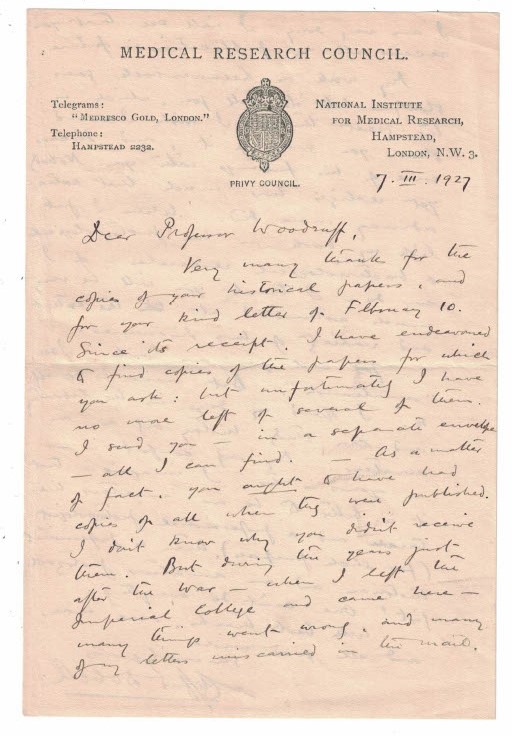 MEDICAL RESEARCH COUNCIL.
Telegrams:
"MEDRESCO GOLD, LONDON."
Telephone:
HAMPSTEAD 2232.
PRIVY COUNCIL.
NATIONAL INSTITUTE
FOR MEDICAL RESEARCH,
HAMPSTEAD,
LONDON, N.W. 3.
7. III. 1927
Dear Professor Woodruff,
Very many thanks for the
copies of your historical papers, and
for your kind letter of February 10.
Since its receipt, I have endeavoured
to find copies of the papers for which
you ask: but unfortunately I have
no more left of several of them.
I send you — in a separate envelope
— all I can find. — As a matter
of fact, you ought to have had
copies of all when they were published.
I don't know why you didn't receive
them. But during the years just
after the War — when I left the
Imperial College and came here —
many things went wrong, and many
of my letters miscarried in the mail.